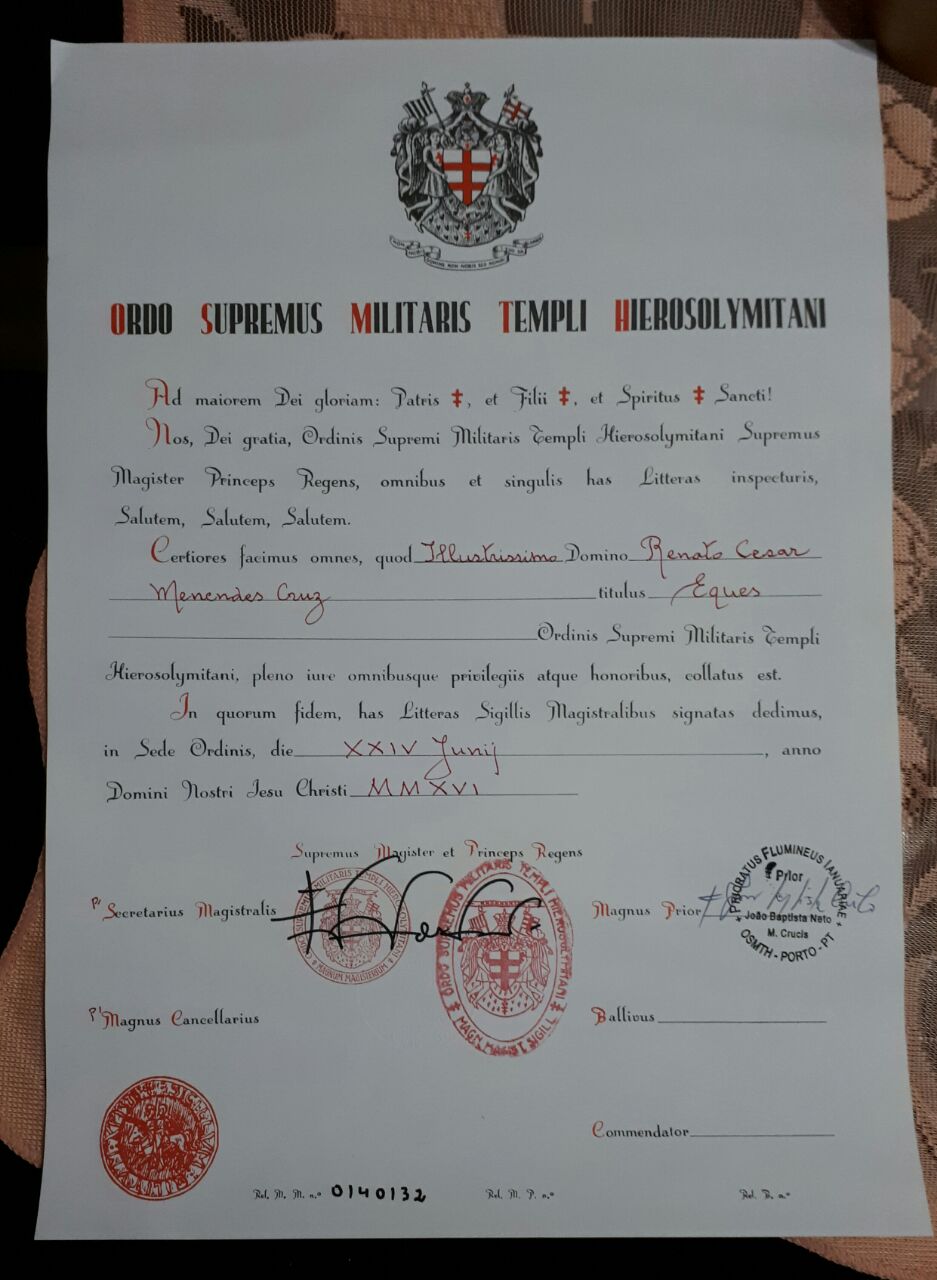 ORDO SUPREMUS MILITARIS TEMPLI HIEROSOLYMITANI
Ad maiorem Dei gloriam: Patris ‡, et Filii ‡, et Spiritus ‡ Sancti!
Nos, Dei gratia, Ordinis Supremi Militaris Templi Hierosolymitani Supremus
Magister Princeps Regens, omnibus et singulis has Litteras inspecturis,
Salutem, Salutem, Salutem.
Certiores facimus omnes, quod Illustrissimo Domino Renato Cesar
Menendes Cruz titulus Eques
Ordinis Supremi Militaris Templi
Hierosolymitani, pleno iure omnibusque privilegiis atque honoribus, collatus est.
In quorum fidem, has Litteras Sigillis Magistralibus signatas dedimus,
in Sede Ordinis, die XXIV Junij, anno
Domini Nostri Iesu Christi MMXVI
Supremus Magister et Princeps Regens
Secretarius Magistralis
MAGNUM MAGISTERIUM
ORDO SUPREMUS MILITARIS TEMPLI HIEROSOLYMITANI
MAGN. MAGIST. SIGILL
Magnus Prior
PRIORATUS FLUMINEUS IANUARIAE
Prior
João Baptista Neto
M. Crucis
OSMTH - PORTO - PT
Magnus Cancellarius
Ballivus
Commendator
Rel. M. M. n.º 0140132 Rel. M. P. n.º Rel. B. n.º